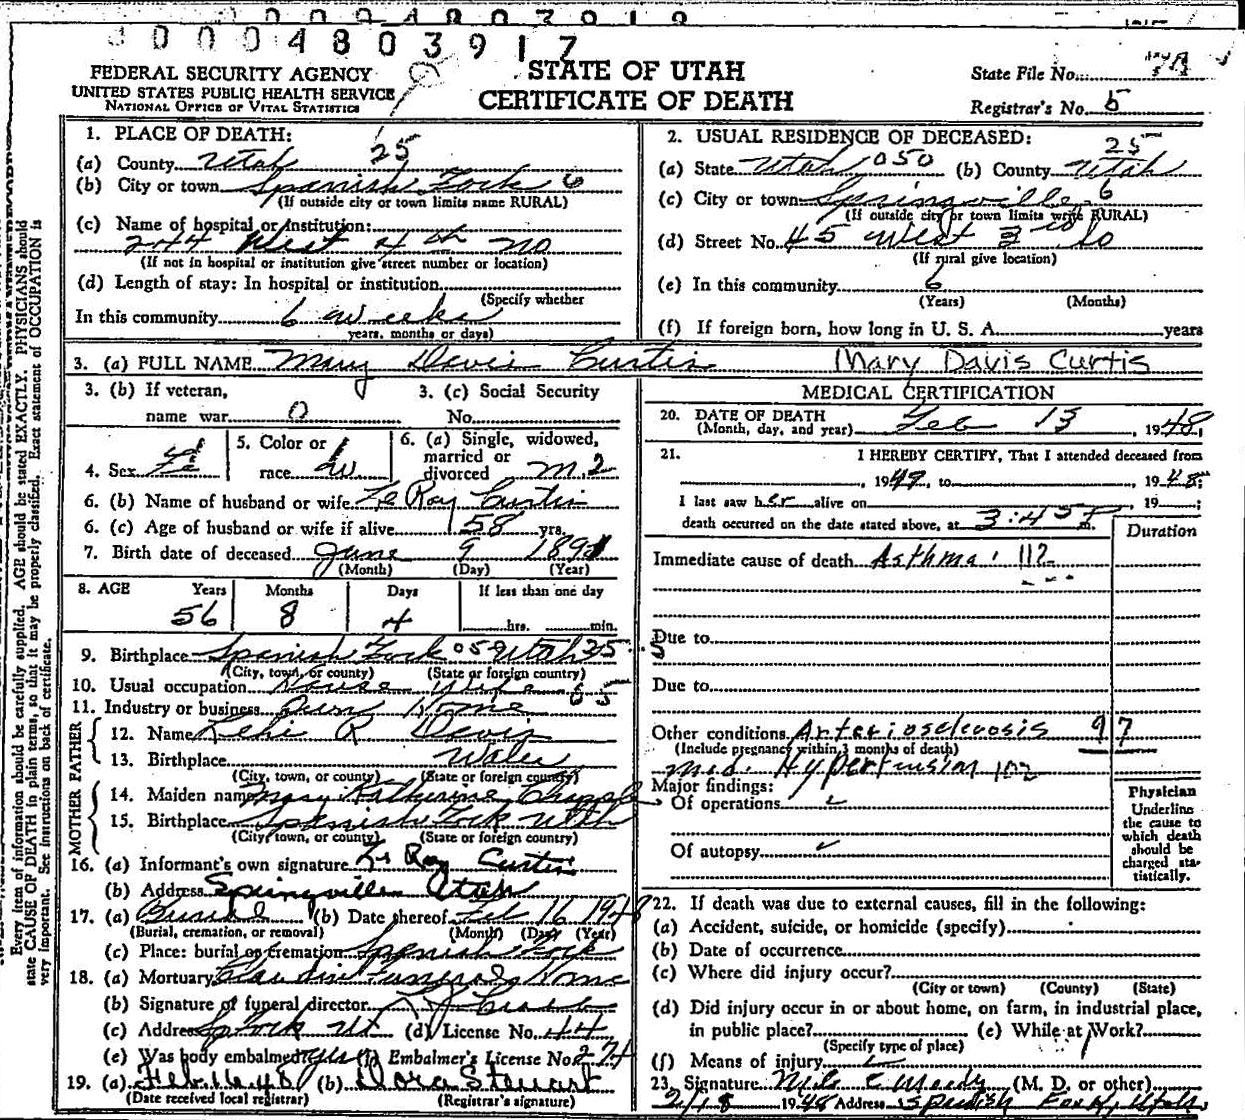 0 0 0 4 8 0 3 9 1 7
FEDERAL SECURITY AGENCY
UNITED STATES PUBLIC HEALTH SERVICE
NATIONAL OFFICE OF VITAL STATISTICS
STATE OF UTAH
CERTIFICATE OF DEATH
State File No. 74
Registrar's No. 5
Every item of information should be carefully supplied. AGE should be stated EXACTLY. PHYSICIANS should
state CAUSE OF DEATH in plain terms, so that it may be properly classified. Exact statement of OCCUPATION is
very important. See instructions on back of certificate.
1. PLACE OF DEATH:
(a) County Utah 25
(b) City or town Spanish Fork 6
(If outside city or town limits name RURAL)
(c) Name of hospital or Institution:
244 West 4th No
(If not in hospital or institution give street number or location)
(d) Length of stay: In hospital or institution
(Specify whether
In this community 6 weeks
years, months or days)
2. USUAL RESIDENCE OF DECEASED:
(a) State Utah 050 (b) County Utah 25
(c) City or town Springville 6
(If outside city or town limits write RURAL)
(d) Street No. 45 West 3rd So
(If rural give location)
(e) In this community 6
(Years) (Months)
(f) If foreign born, how long in U. S. A. years
3. (a) FULL NAME Mary Davis Curtis Mary Davis Curtis
3. (b) If veteran,
name war 0
3. (c) Social Security
No.
4. Sex Fe
5. Color or
race W
6. (a) Single, widowed,
married or
divorced M.2
6. (b) Name of husband or wife Le Roy Curtis
6. (c) Age of husband or wife if alive 58 yrs.
7. Birth date of deceased June 9 1891
(Month) (Day) (Year)
8. AGE Years Months Days If less than one day
56 8 4 hrs. min.
9. Birthplace Spanish Fork 059 Utah 25 5
(City, town, or county) (State or foreign country)
10. Usual occupation House Wife
11. Industry or business Own Home
FATHER
12. Name Lehi R Davis
13. Birthplace Wales
(City, town, or county) (State or foreign country)
MOTHER
14. Maiden name Mary Katherine
15. Birthplace Spanish Fork Utah
(City, town, or county) (State or foreign country)
16. (a) Informant's own signature Le Roy Curtis
(b) Address Springville Utah
17. (a) Burial (b) Date thereof Feb 16 1948
(Burial, cremation, or removal) (Month) (Day) (Year)
(c) Place: burial or cremation Spanish Fork
18. (a) Mortuary Claudin Funeral Home
(b) Signature of funeral director
(c) Address Sp Fork Ut (d) License No. 44
(e) Was body embalmed yes (f) Embalmer's License No. 274
19. (a) Feb. 16 48 (b) Dora Stewart
(Date received local registrar) (Registrar's signature)
MEDICAL CERTIFICATION
20. DATE OF DEATH
(Month, day, and year) Feb 13, 1948;
21. I HEREBY CERTIFY, That I attended deceased from
, 1947, to , 1948;
I last saw her alive on , 19 ;
death occurred on the date stated above, at 3:45 P m.
Duration
Immediate cause of death Asthma 112
Due to
Due to
Other conditions Arteriosclerosis 97
(Include pregnancy within 3 months of death)
Mod. Hypertension 102
Major findings:
Of operations
Of autopsy
Physician
Underline
the cause to
which death
should be
charged sta-
tistically.
22. If death was due to external causes, fill in the following:
(a) Accident, suicide, or homicide (specify)
(b) Date of occurrence
(c) Where did injury occur?
(City or town) (County) (State)
(d) Did injury occur in or about home, on farm, in industrial place,
in public place? (e) While at Work?
(Specify type of place)
(f) Means of injury
23. Signature Moody (M. D. or other)
2/18 1948 Address Spanish Fork, Utah.